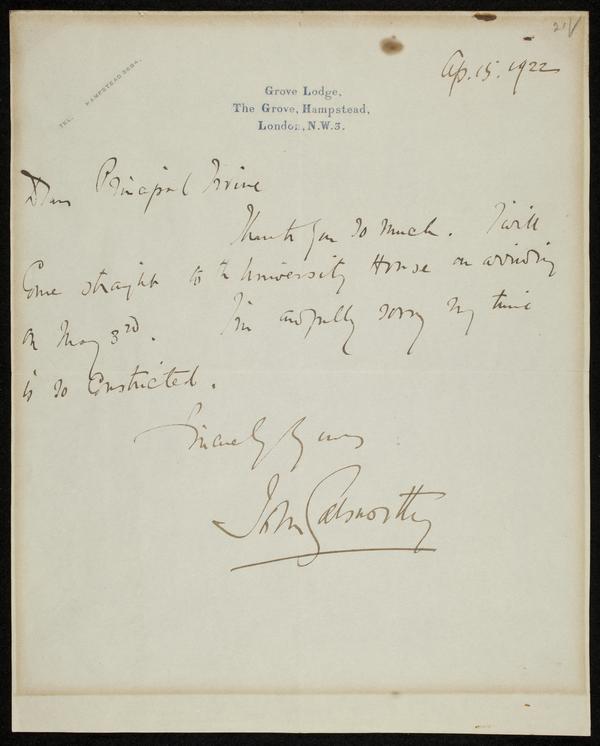 21/
Ap. 15. 1922
TEL. HAMPSTEAD 3684.
Grove Lodge,
The Grove, Hampstead,
London, N.W.3.
Dear Principal Irvine
Thank you so much. I will
come straight to the University House on arriving
on May 3rd. I'm awfully sorry my time
is so constricted.
Sincerely Yours
John Galsworthy